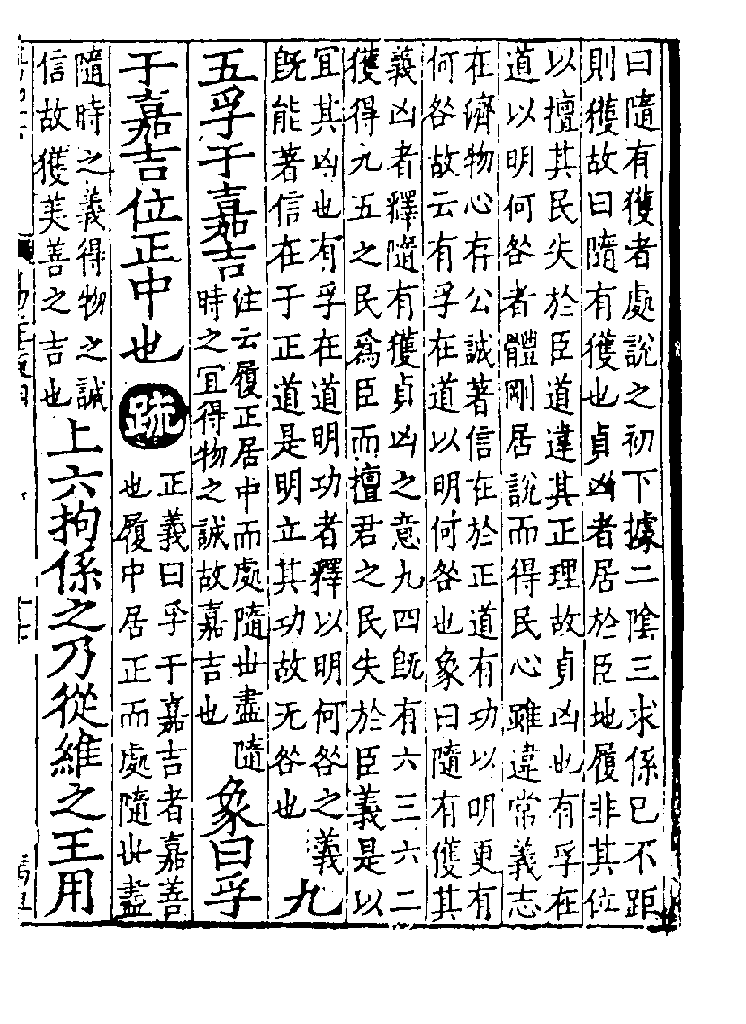 曰隨有獲者處說之初下據二陰三求係巳不距
則獲故曰隨有獲也貞凶者居於臣地履非其位
以擅其民失於臣道違其正理故貞凶也有孚在
道以明何咎者體剛居說而得民心雖違常義志
在濟物心存公誠著信在於正道有功以明更有
何咎故云有孚在道以明何咎也象曰隨有獲其
義凶者釋隨有獲貞凶之意九四旣有六三六二
獲得九五之民爲臣而擅君之民失於臣義是以
宜其凶也有孚在道明功者釋以明何咎之義
旣能著信在于正道是明立其功故无咎也
九
五孚于嘉吉
往云履正居中而處隨世盡隨
時之宜得物之誠故嘉吉也
象曰孚
于嘉吉位正中也
疏
正義曰孚于嘉吉者嘉善
也履中居正而處隨世盡
隨時之義得物之誠
信故獲美善之吉也
上六拘係之乃從維之王用